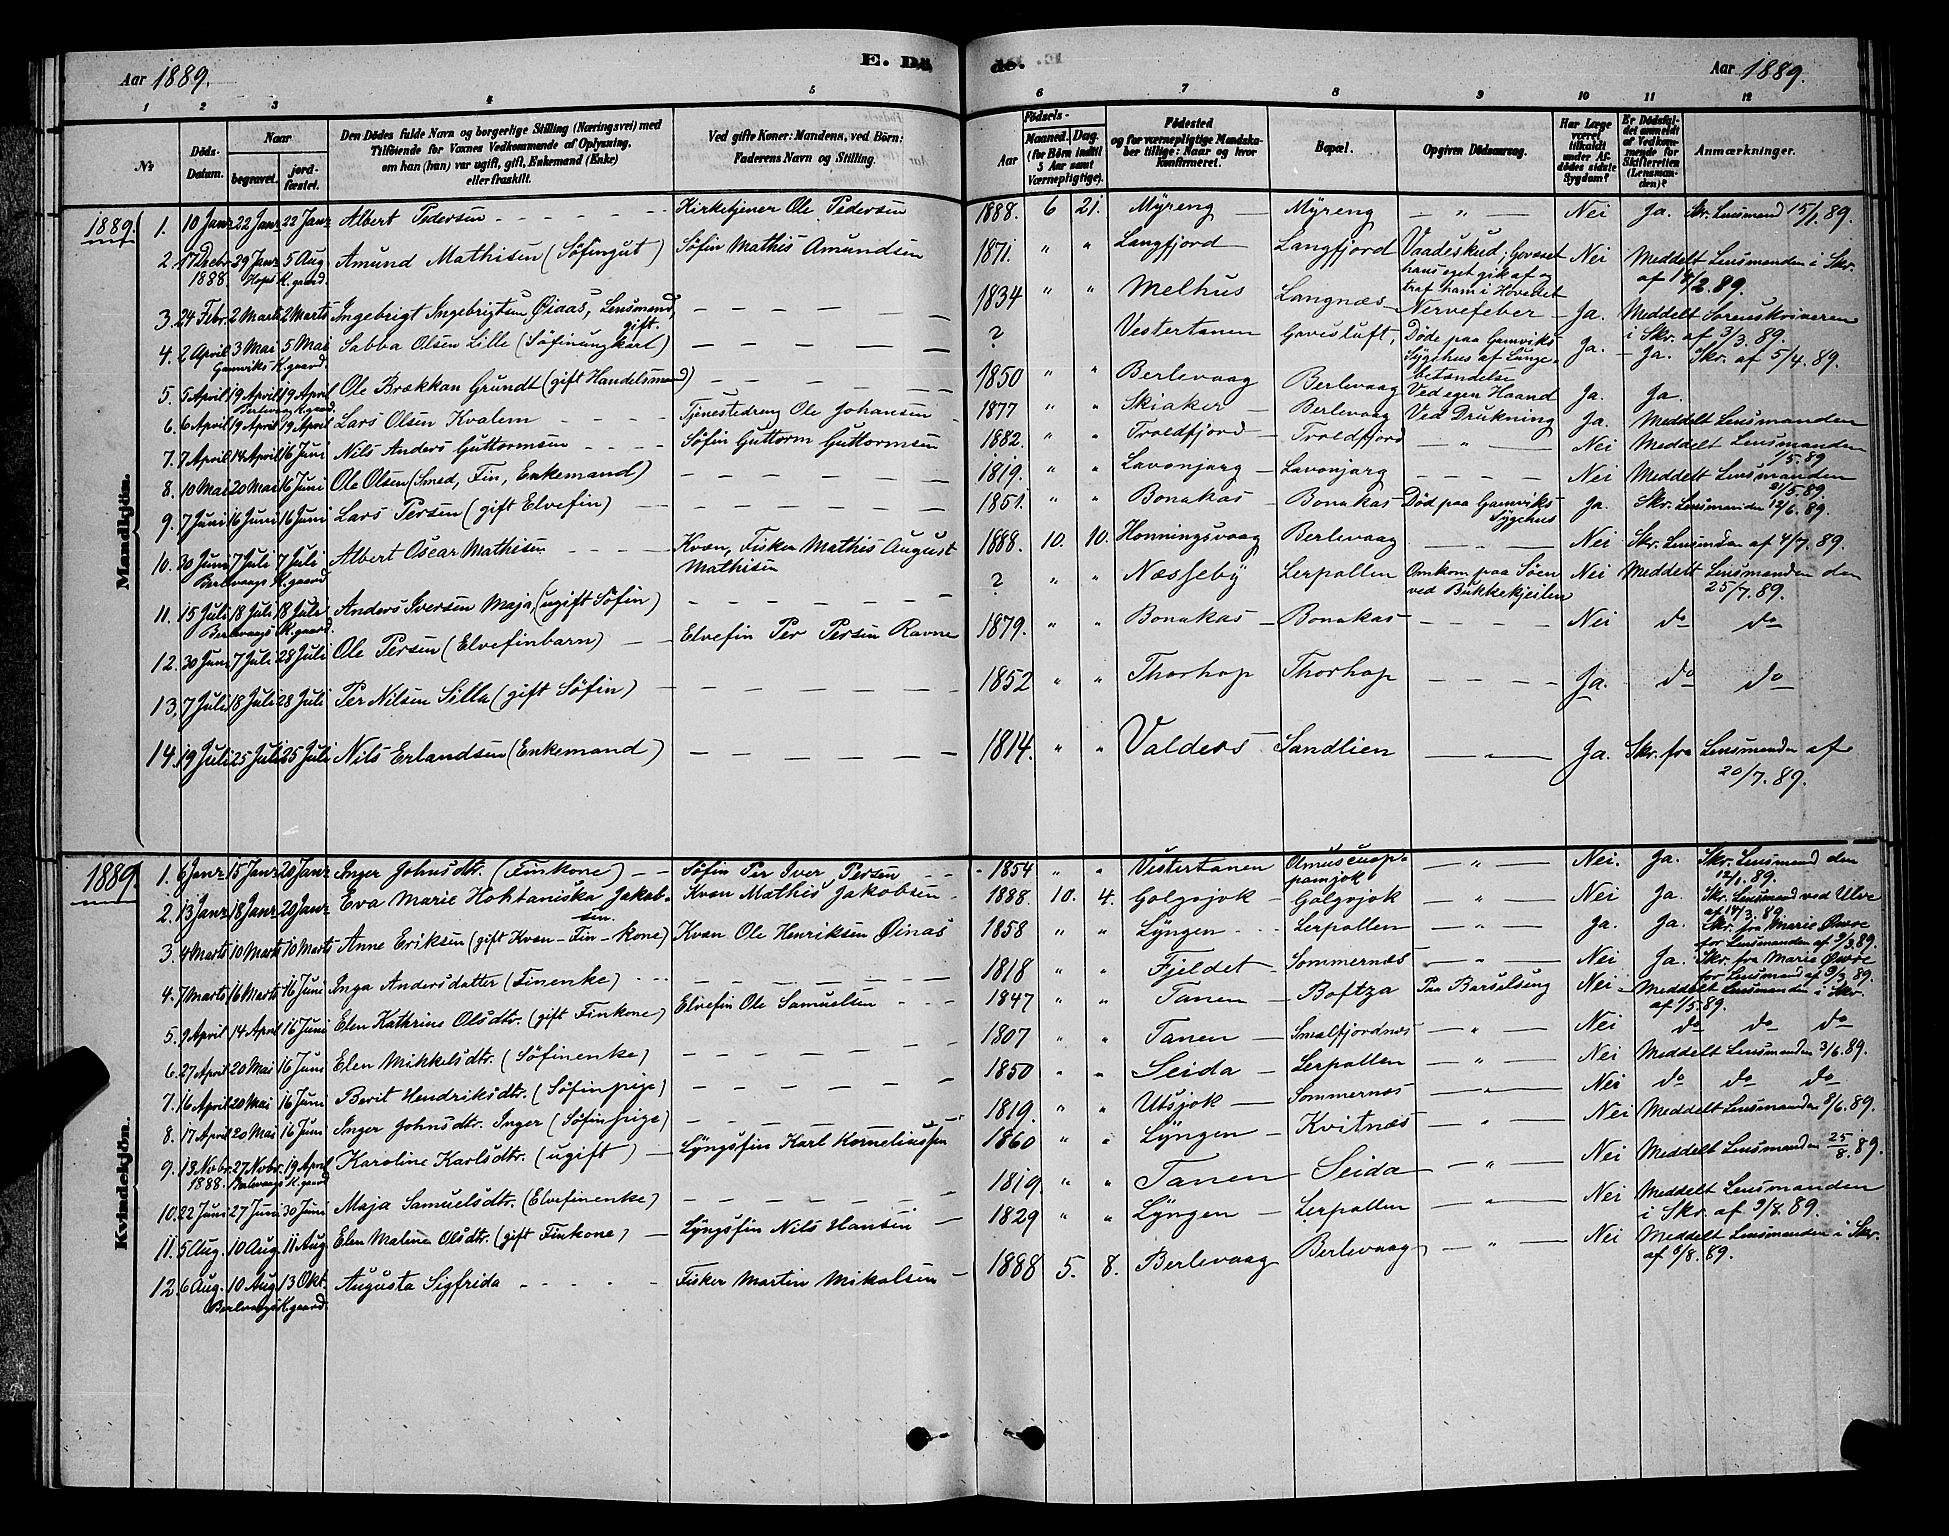 Aar 1889. E. Dö
de. Aar 1889.
1 2 3 4 5
6 7 8 9 10 11 12
№ Döds-Datum. Naar begravet. jordfæstet. Den Dödes fulde Navn og borgerlige Stilling (Næringsvei) med Tilföiende for Voxnes Vedkommende af Oplysning, om han (hun) var ugift, gift, Enkemand (Enke) eller fraskilt. Ved gifte Koner: Mandens, ved Börn: Faderens Navn og Stilling.
Födsels- Aar Maaned. Dag. (for Börn indtil 5 Aar samt Værnepligtige). Födested og for værnepligtige Mandskaber tillige: Naar og hvor konfirmeret. Bopæl. Opgiven Dödsaarsag. Har Læge været tilkaldt under Afdödes sidste Sygdom? Er Dödsfaldet anmeldt af Vedkommende for Skifteretten (Lensmanden)? Anmærkninger.
Mandkjön.
1889. 1. 10 Janr 22 Janr 22 Janr Albert Pedersen Kirketjener Ole Pedersen 1888. 6 21. Myreng Myreng — " — Nei Ja. Skr. Lensmand 15/1.89.
2. 17 Decbr. 1888. 29 Janr 5 Aug. Hops K.gaard. Amund Mathisen (Söfingut) Söfin Mathis Amundsen 1871. " " Langfjord Langfjord Vaadeskud; Geværet hans eget gik af og traf ham i Hovedet Nei Meddelt Lensmanden i Skr. af 14/2.89.
3. 24 Febr. 2 Marts 2 Marts Ingebrigt Ingebrigtsen Öiaas, Lensmand, gift. 1834 " " Melhus Langnæs Nervefeber Ja. Meddelt Sorenskriveren i Skr. af 3/3.89.
4. 2 April 3 Mai 5 Mai Gamviks K.gaard. Sabba Olsen Lille (Söfinungkarl) ? Vestertanen Gavesluft, Döde paa Gamviks Sygehus af Lungebetændelse Ja. Ja. Skr. af 5/4.89.
5. 5 April 19 April 19 April Berlevaag K.gaard. Ole Brækkan Grundt (gift Handelsmand) 1850 " " Berlevaag Berlevaag Ved egen Haand Ja. Ja.
6. 6 April 19 April 19 April Lars Olsen Kvalem Tjenestedreng Ole Johansen 1877 " " Skiaker Berlevaag Ved Drukning Ja. Meddelt Lensmanden
7. 7 April 14 April 16 Juni Nils Anders Guttormsen Söfin Guttorm Guttormsen 1882. " " Troldfjord Troldfjord — " — Nei Meddelt Lensmanden 1/5.89
8. 10 Mai 20 Mai 16 Juni Ole Olsen (Smed, Fin, Enkemand) 1819. " " Lavonjarg Lavonjarg Nei Meddelt Lensmanden 21/5.89.
9. 7 Juni 16 Juni 16 Juni Lars Persen (gift Elvefin) 1851. " " Bonakas Bonakas Död paa Gamviks Sygehus Ja. Skr. Lensmanden 12/6.89.
10. 30 Juni 7 Juli 7 Juli Berlevaags K.gaard Albert Oscar Mathisen Kvæn, Fisker Mathis August Mathisen 1888. 10. 10. Honningsvaag Berlevaag Nei Skr. Lensmden af 4/7.89.
11. 15 Juli 18 Juli 18 Juli Berlevaags K.gaard. Anders Iversen Maja, (ugift Söfin) ? " " Næsseby Lerpollen Omkom paa Söen ved Bukkekjeilen Nei Meddelt Lensmanden den 25/7.89.
12. 30 Juni 7 Juli 28 Juli Ole Persen (Elvefinbarn) Elvefin Per Persen Ravne 1879. " " Bonakas Bonakas Nei do do
13. 7 Juli 18 Juli 28 Juli Per Nilsen Silla (gift Söfin) 1852 " " Thorhop Thorhop Ja. do do
14. 19 Juli 25 Juli 25 Juli Nils Erlandsen (Enkemand) 1814. " " Valders Sandlien — " — Ja. Skr. fra Lensmanden af 20/7.89.
Kvindekjön.
1889. 1. 6 Janr 15 Janr 20 Janr Inger Johnsdtr. (Finkone) Söfin Per Iver Persen 1854 " " Vestertanen — " — Nei. Ja. Skr. Lensmand den 12/1.89.
2. 13 Janr 18 Janr 20 Janr Eva Marie Hohtaniska Jakobsen. Kvæn Mathis Jakobsen 1888. 10. 4. Golgojok Golgojok — " — Nei Ja. Skr. Lensmand ved Ulve af 14/3.89
3. 4 Marts 10 Marts 10 Marts Anne Eriksen (gift Kvæn-Fin-kone) Kvæn Ole Henriksen Öinas 1858 " " Lyngen Lerpollen — " — Ja. Ja. Skr. fra Marie Øwre for Lensmanden af 9/3.89.
4. 7 Marts 16 Marts 16 Juni Inga Andersdatter (Finenke) 1818 " " Fjeldet Sommernæs — " — Nei Ja. Skr. fra Marie Øwre for Lensmand af 9/3.89.
5. 9 April 14 April 16 Juni Elen Kathrine Olsdtr. (gift Finkone) Elvefin Ole Samuelsen 1847 " " Tanen Boftza Paa Barselseng Nei Meddelt Lensmanden i Skr. af 1/5.89.
6. 27 April 20 Mai 16 Juni Elen Mikkelsdtr. (Söfinenke) 1807 " " Tanen Smalfjordnæs — " — Nei do do do
7. 16 April 20 Mai 16 Juni Berit Hendriksdtr. (Söfinpige) 1850 " " Seida Lerpollen — " — Nei Meddelt Lensmanden 3/6.89.
8. 17 April 20 Mai 16 Juni Inger Johnsdtr. Inger (Söfinpige) 1819. " " Utsjok Sommernæs — " — Nei do do do
9. 13 Novbr. 1888. 27 Novbr. 19 April Berlevaags K.gaard Karoline Karlsdtr. (ugift) Lyngsfin Karl Korneliussen 1860 " " Lyngen Kvitnæs " Nei Meddelt Lensmanden 8/6.89.
10. 22 Juni 27 Juni 30 Juni Maja Samuelsdtr. (Elvefinenke) 1819. " " Tanen Seida — " — Nei Meddelt Lensmanden 25/8.89.
11. 5 Aug. 10 Aug. 11 Aug. Elen Malene Olsdtr. (gift Finkone) Lyngsfin Nils Hansen 1829 " " Lyngen Lerpollen — " — Nei Meddelt Lensmanden i Skr. af 9/8.89.
12. 6 Aug. 10 Aug. 13 Okt. Berlevaags K.gaard. Augusta Sigfrida Fisker Martin Mikalsen 1888 5. 8. Berlevaag Berlevaag — " — Nei Meddelt Lensmanden i Skr. af 9/8.89.